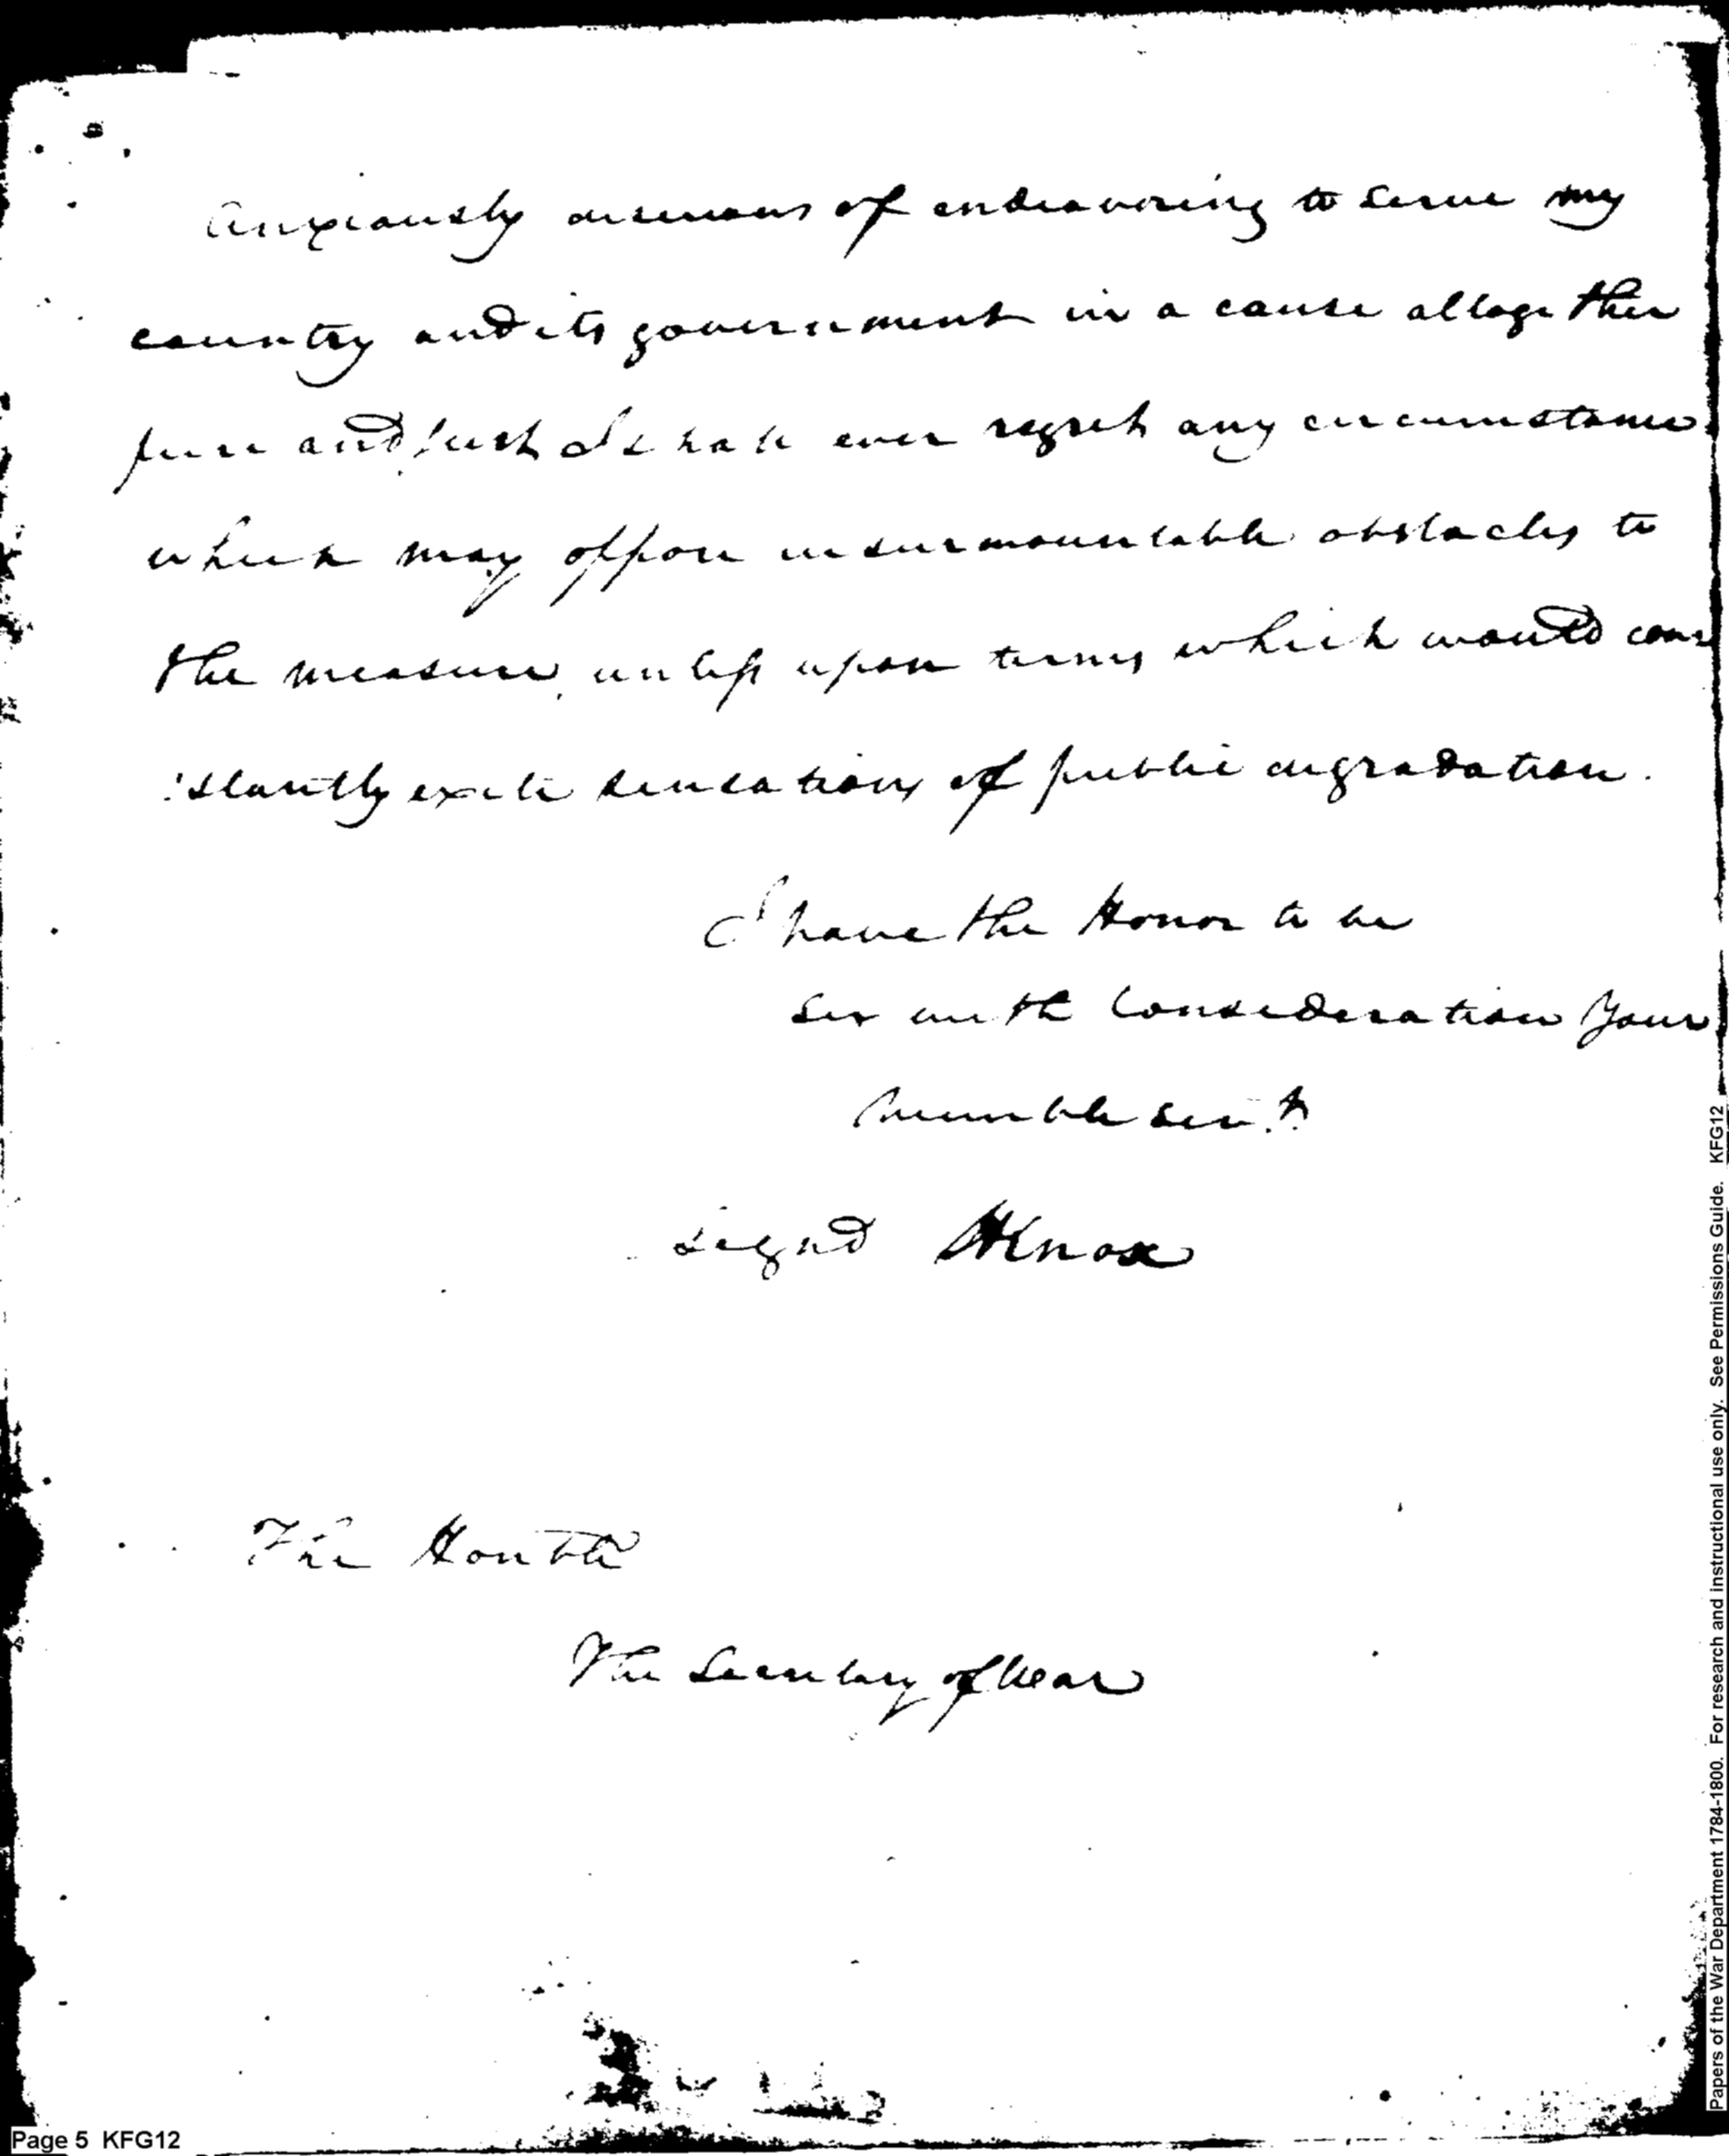 Anxiously desirous of endeavoring to serve my
country and its government in a cause altogether
pure and just I shall ever regret any circumstance
which may oppose insurmountable obstacles to
the measure, unless upon terms which would con
:stantly excite sensations of public degradation.
I have the Honor to be
Sir with Consideration Your
humble servt
signd HKnox
The Honble
The Secretary of War
Page 5 KFG12
Papers of the War Department 1784-1800. For research and instructional use only. See Permissions Guide. KFG12